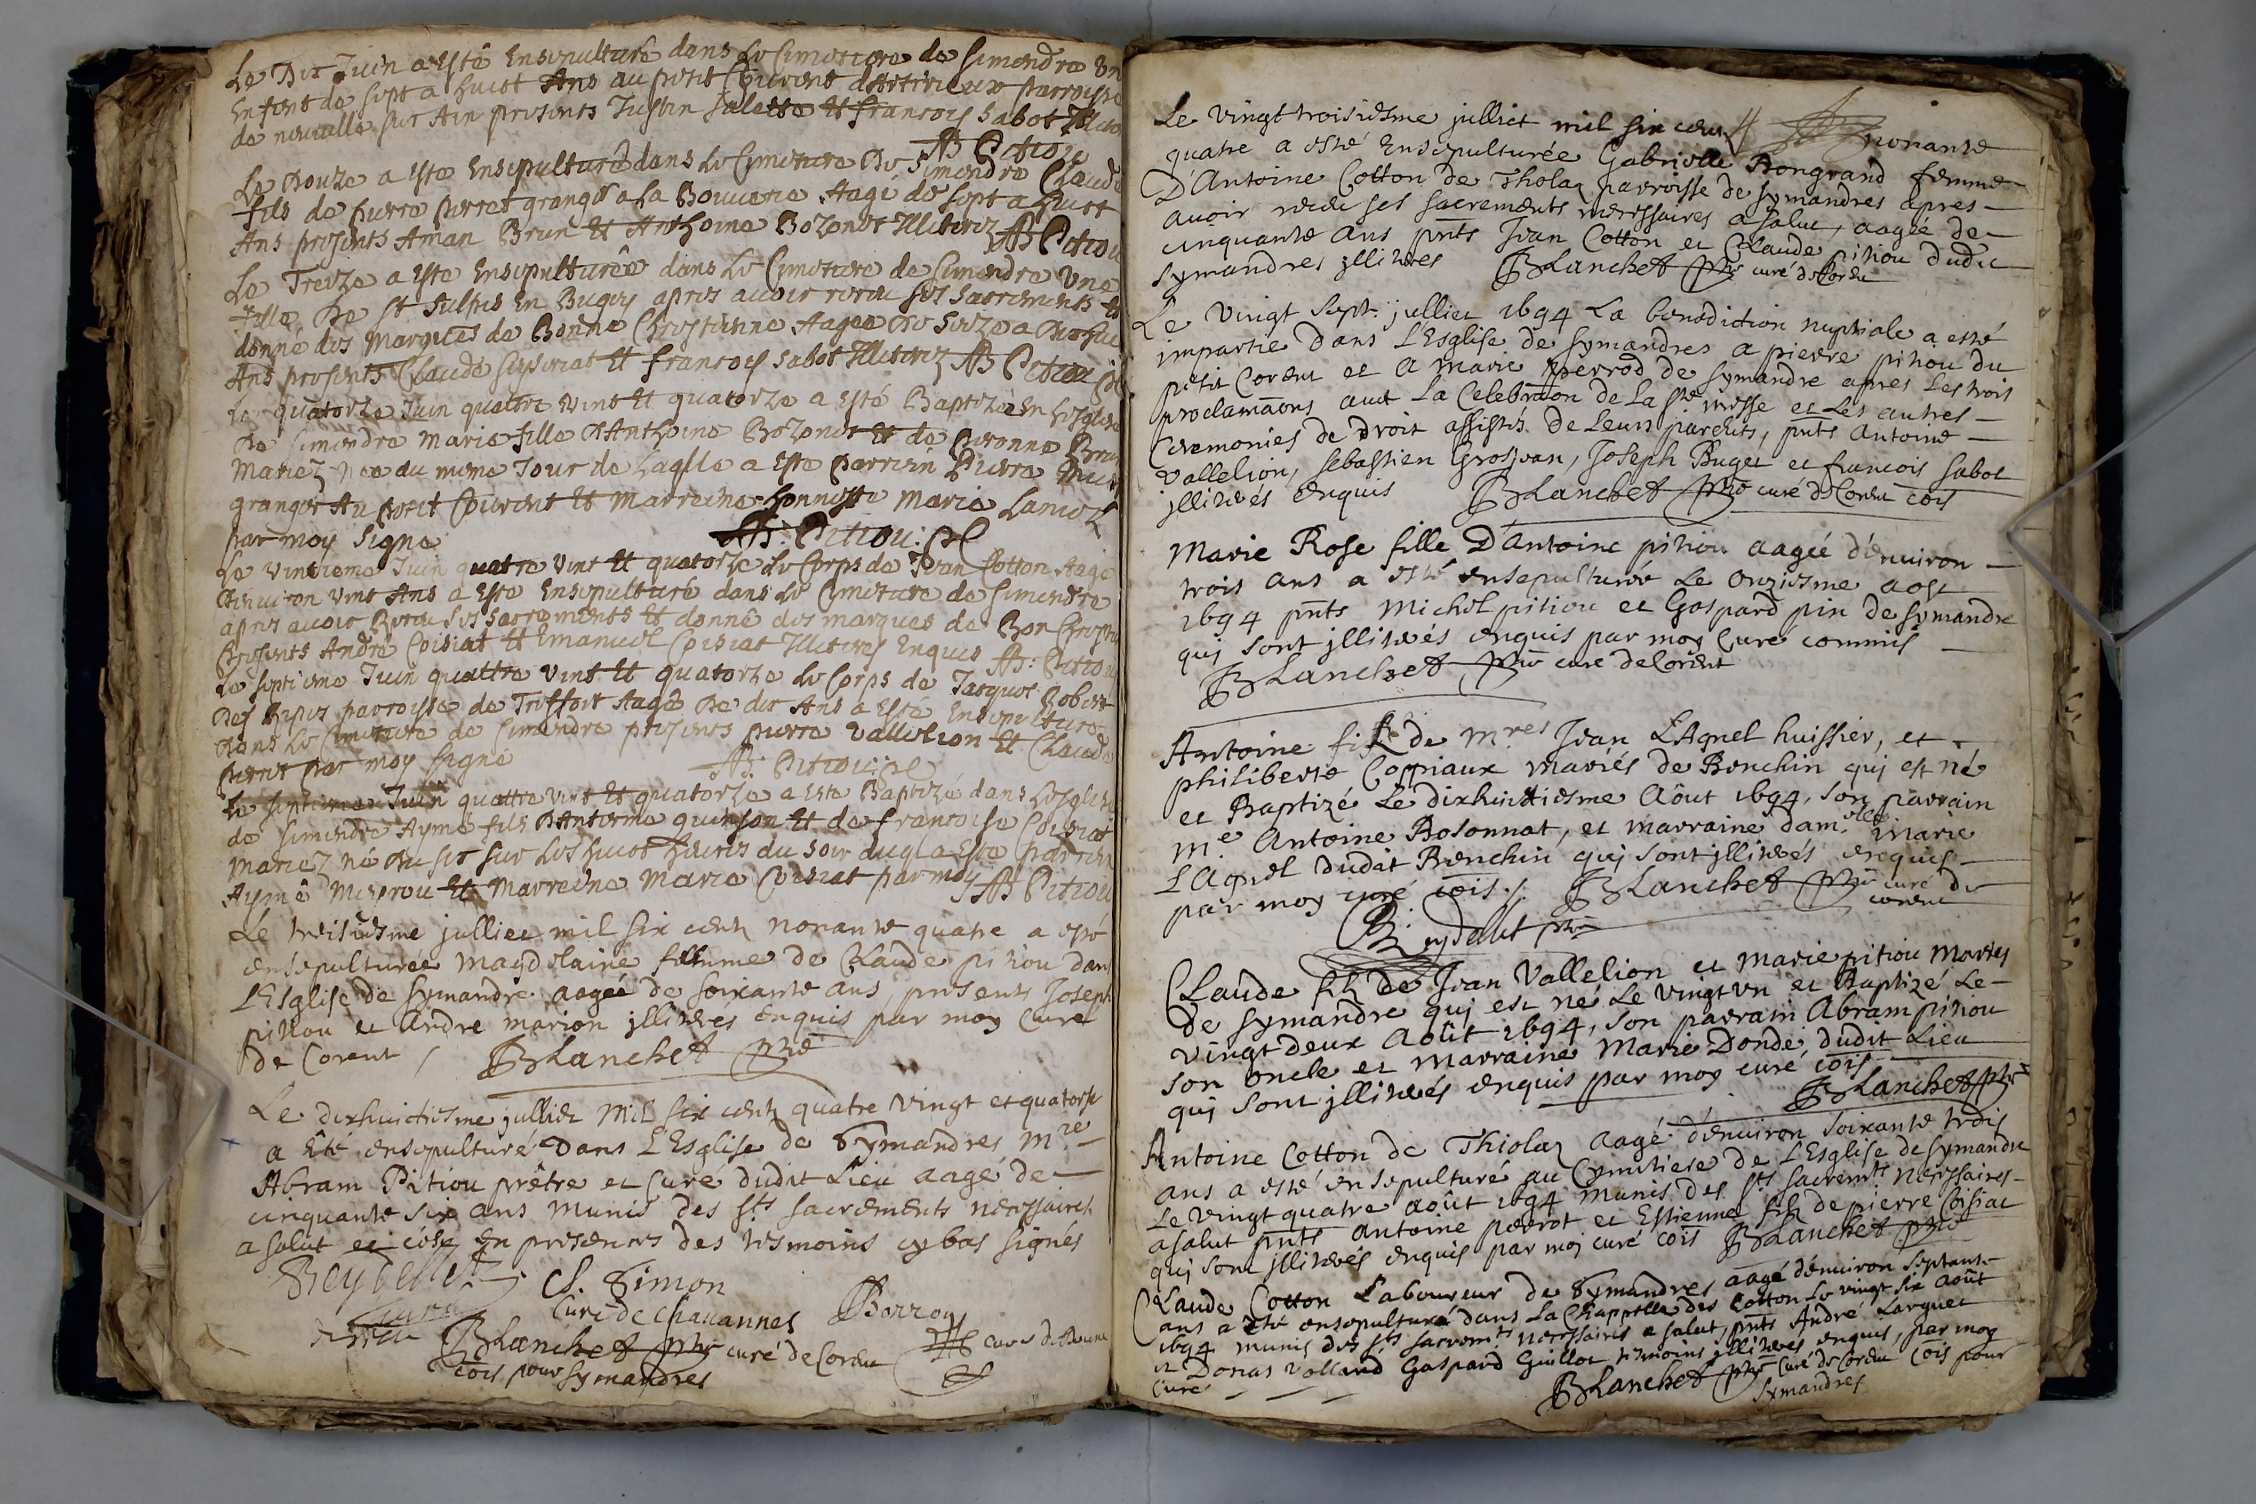 Le Dix Juin a esté Ensepulturé dans Le Cimetiere de simendre Un
Enfent de sept a huict Ans au petit Couvent parroisse
de neuville sur Ain presents Justin salette Et francois sabot
AB Pitiou
Le Douze a este Ensepulturé dans Le Cimetiere De simendre Claude
fils de pierre perret granger a la Bouverie Aagé de sept a huict
Ans presents Aman Brun Et Anthoine Bozonet Illiterez AB Pitiou
Le Treize a este Ensepulturée dans Le Cimetiere de Simendre Une
fille De st Sulpis En Bugey apres avoir receu ses sacrements Et
donné des marques de Bonne Chrestienne Aagee De seize a
Ans presents Claude Et francois sabot Illiterez AB Pitiou
Le quatorze Juin quatre vint Et quatorze a esté Baptizée En Lesglise
De simendre marie fille DAnthoine Bozonet Et de Peronne Brun
Mariez Née du meme Jour de Laqlle a este parrein Pierre
granger Au petit Couvent Et Marreine honneste Marie Lanioz
par moy signe AB: Pitiou:
Le vintieme Juin quatre vint Et quatorze Le Corps de Jean Cotton Aagé
denviron vint Ans a Este Ensepulturé dans Le Cimetiere de simendre
apres avoir Receu ses sacrements Et donné des marques de Bon
Presents André Coisiat Et Emanuel Coisiat Illiterez Enquis AB: Pitiou
Le septieme Juin quattre vint Et quatorze Le Corps de Jacques Robert
Des parroisse de Treffort Aagé De dix Ans a Esté Ensepulturé
Dans Le Cimetiere de Simendre presents pierre vallelion Et Claude
perret par moy signe AB: Pitiou:
Le septieme Juin quattre vint Et quatorze a Este Baptizé dans Lesglise
de simendre Aymé fils DAntoine quinson Et de francoise Coisiat
Mariez né Du six sur Les huict heures du soir duql a Este parrein
Aymé Et Marreine Marie Coisiat par moy AB Pitiou
Le troisiesme julliet mil six cents nonante quatre a esté
ensepulturée Magdelaine femme de Claude pitiou dans
L'Esglise de symandre aagée de soixante ans, presents Joseph
pitiou et Andre marion jlliteres enquis par moy Curé
de Corent / Blanchet ptre
Le dixhuictiesme julliet Mil six cents quatre vingt et quatorse
a Eté ensepulturé Dans L'Esglise de Symandres Mre
Abram Pitiou prêtre et Curé dudit Lieu aagé de
cinquante six ans munis des sts sacrements necessaires
a salut et En presences des tesmoins cy bas signés
Cl. Simon
Curé de Chavannes
Blanchet ptre curé de Corent
cois pour Symandres
Le vingt troisiesme julliet mil six cents nonante
quatre a esté Ensepulturée Gabrielle Bongrand femme
D'Antoine Cotton de Tholaz parroisse de symandres apres
avoir receu ses sacrements necessaires a salut, aagée de
cinquante ans pnts Jean Cotton et Claude pitiou dudit
symandres jlliteres Blanchet ptre curé de Corent
Le vingt sept. julliet 1694 La benediction nuptiale a esté
impartie Dans L'Esglise de symandres a pierre pitiou du
petit Corent et a Marie perrod de symandre apres Les trois
proclamaons avec La Celebraon de La ste messe et Les autres
Ceremonies de Droit assistés de Leurs parents, pnts Antoine
Vallelion, sebastien Grosjean, Joseph Buget et francois sabot
jlliterés enquis Blanchet ptre curé de Corent cois
Marie Rose fille D'Antoine pitiou aagée d'environ
trois ans a esté ensepulturée Le onziesme aost
1694 pnts Michel pitiou et Gaspard pin de symandre
qui sont jlliterés enquis par moy Curé commis
Blanchet ptre curé de Corent
Antoine fils de Mres Jean L'Agnel huissier, et
philiberte Coppiaux mariés de Bonchin qui est né
et Baptizé Le dixhuictiesme Aôut 1694, son parrain
Me Antoine Bosonnat, et marraine damelle Marie
L'Agnel dudit Bonchin qui sont jlliterés enquis
par moy curé cois ./. Blanchet ptre curé de
Corent
Claude fils de Jean Vallelion et marie pitiou Mariés
De symandre qui est né Le vingt vn et Baptizé Le
vingt deux Aoûst 1694, son parrain Abram pitiou
son oncle et marraine Marie Dondé, dudit Lieu
qui sont jlliterés enquis par moy curé cois
Blanchet ptre
Antoine Cotton de Thiolaz aagé d'environ soixante trois
ans a esté ensepulturé au Cymitiere de L'Esglise de symandre
Le vingt quatre août 1694 munis des sts sacremts necessaires
a salut pnts Antoine perrot et Estienne fils de pierre Coisiat
qui sont jlliterés enquis par moy curé cois Blanchet ptre
Claude Cotton Laboureur de Symandres aagé d'environ septante
ans a Eté ensepulturé dans La Chappelle des Cotton Le vingt six août
1694 munis des sts sacremts necessaires a salut, pnts André Larguet
et Donas Volland Gaspard Guillot tesmoins jlliterés enquis, par moy
Curé Blanchet ptre Curé de Corent Cois pour
symandres